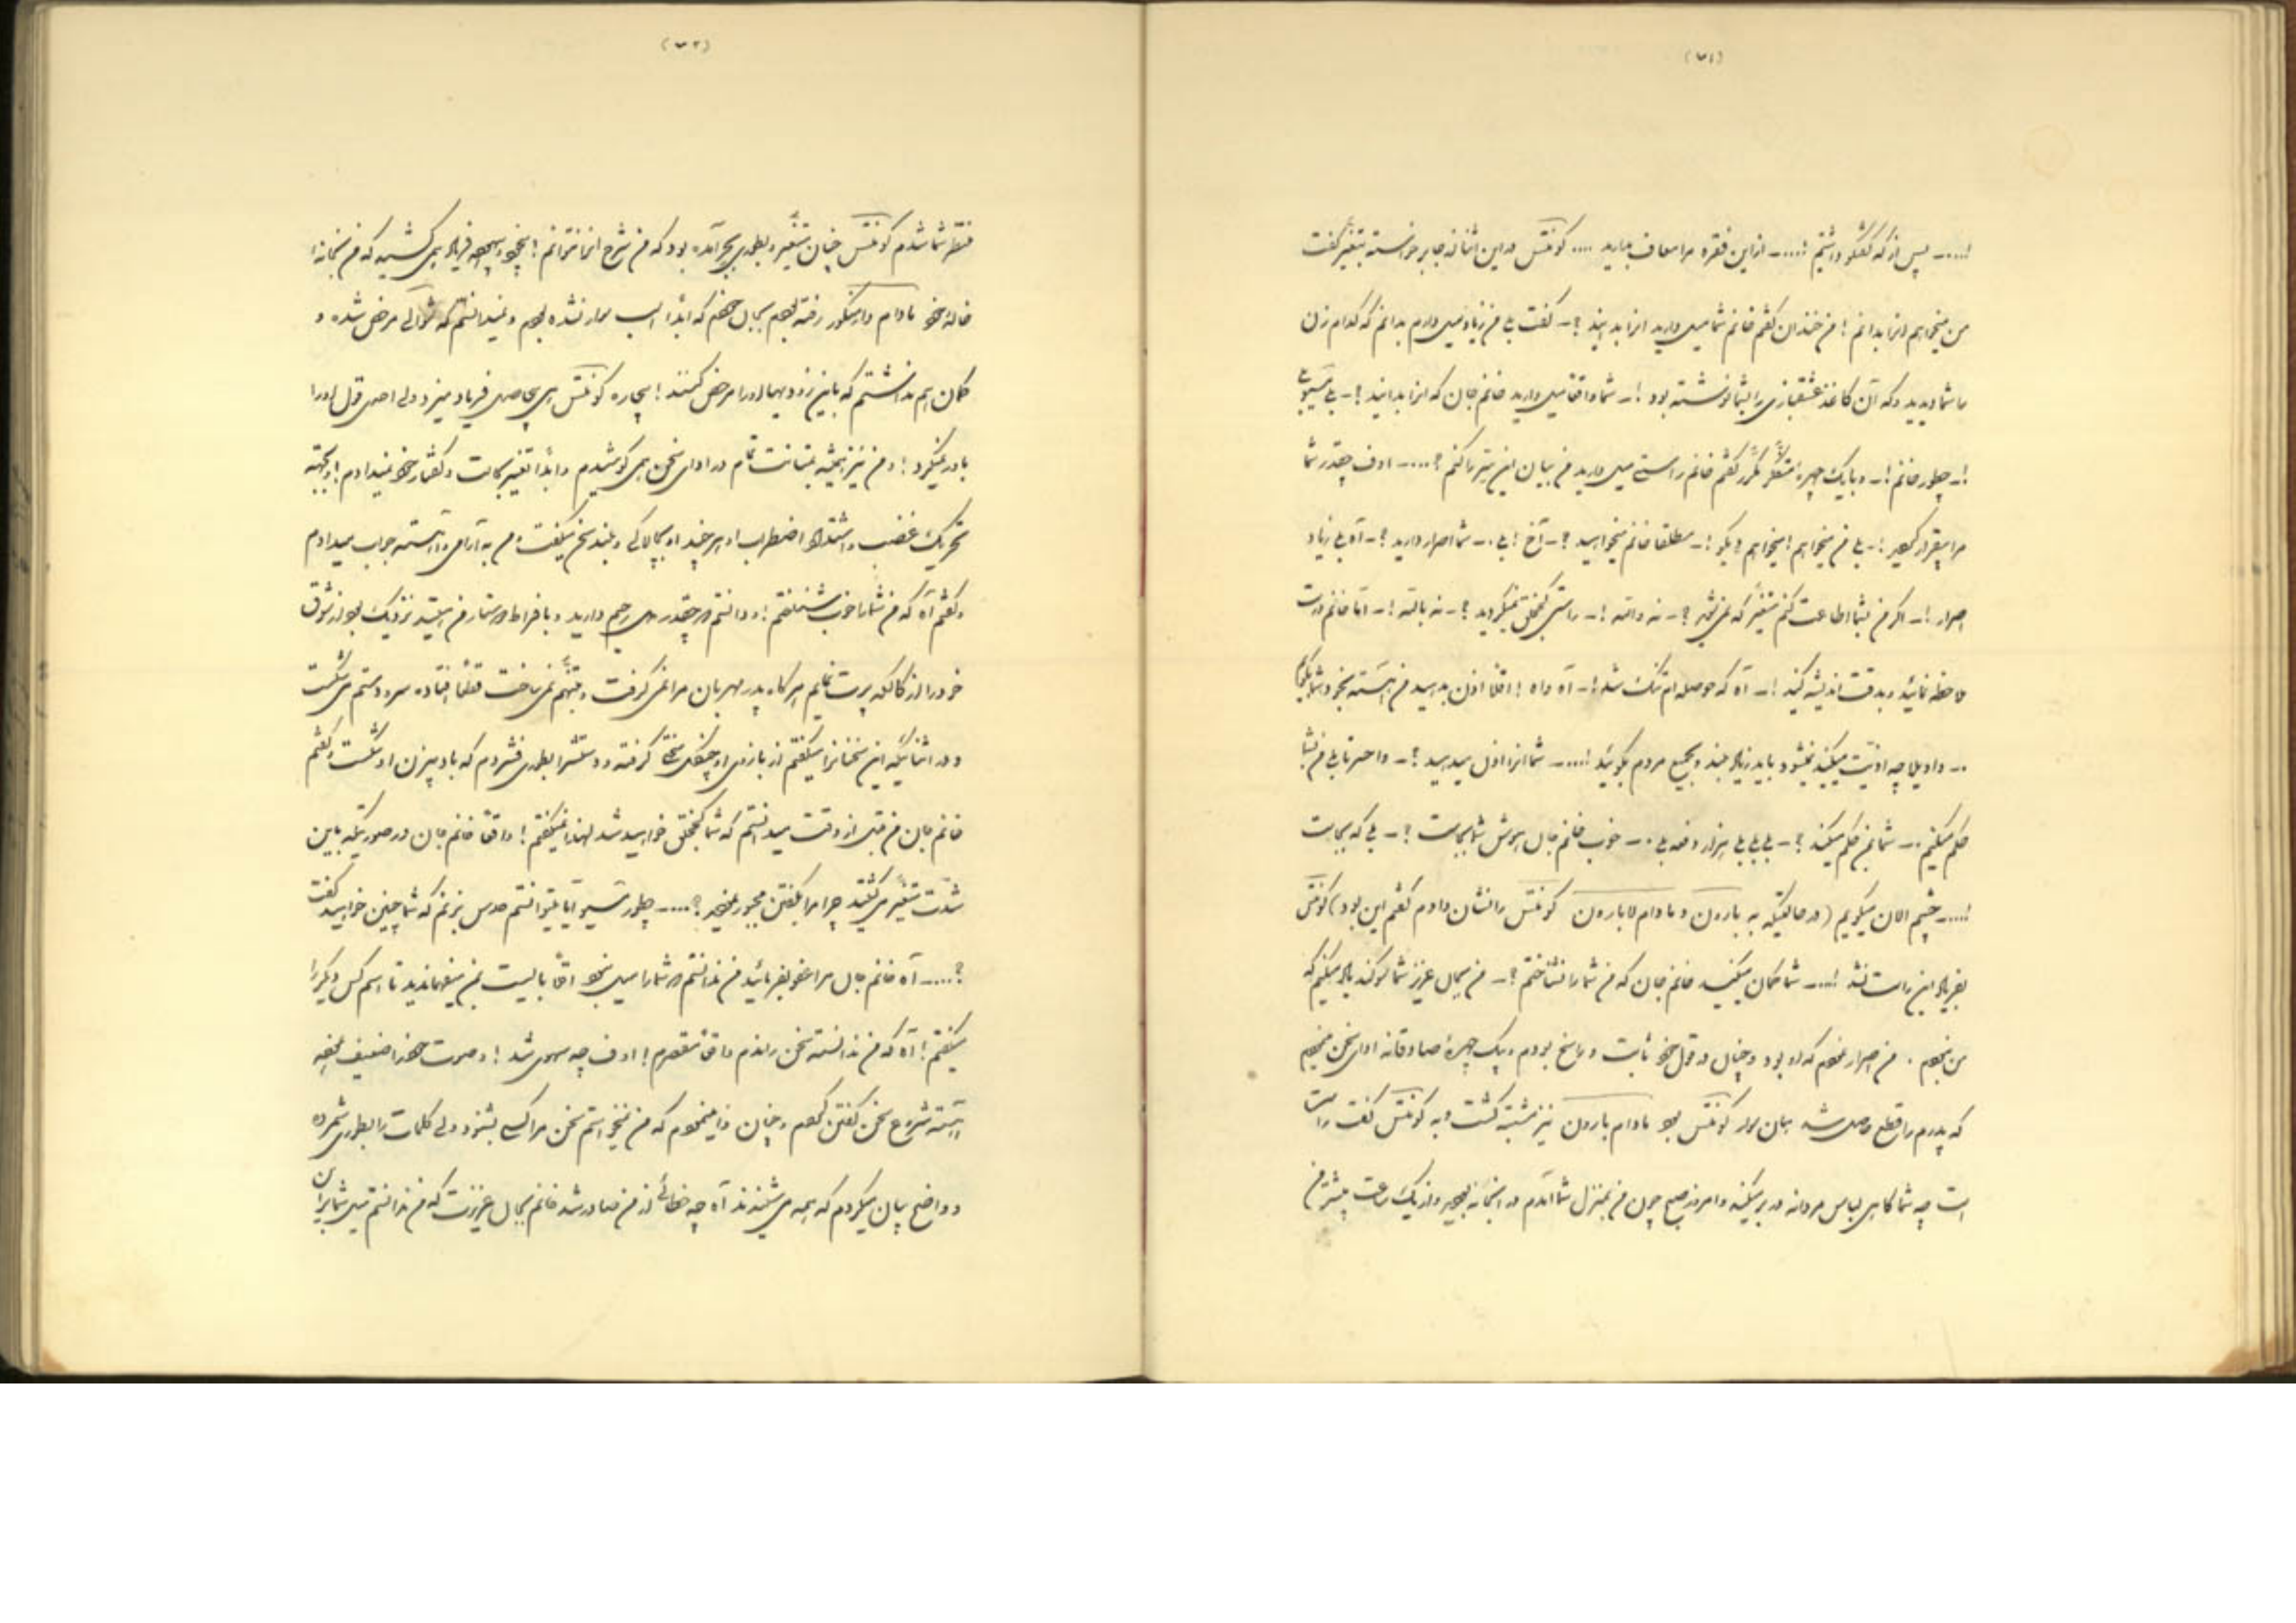 (۷۱)
!.... ـ پس از که گفتگو داشتیم !.... ـ ازین فقره مرا معاف بدارید .... کونتس در این اثنا از جا برخواسته بتغیّر گفت
من میخواهم انرا بدانم ! من خندان گفتم خانم شما میل دارید انرا بدانید ؟ ـ گفت بلی من زیاد میل دارم بدانم که کدام زن
با شما دیدید که آن کاغذ عشقبازی را بشما نوشته بود !ـ شما واقعا میل دارید خانم جان که انرا بدانید ؟ ـ بلی مسیو بلی
!ـ چطور خانم !ـ و با یک چهرهٔ متفکر مکرّر گفتم خانم راستی میل دارید من بیان این سرّ را کنم ؟.... ـ اوف چقدر شما
مرا بیقرار کردید !ـ بلی من میخواهم ! میخواهم بگو !ـ مطلقا خانم میخواهید ؟ ـ آخ ! بلی . ـ شما اصرار دارید ؟ ـ آه بلی زیاد
اصرار !ـ اگر من بشما اطاعت کنم متغیّر که نمی‌شوید ؟ ـ نه واللّه !ـ راستی کج‌خلق نمیگردید ؟ ـ نه باللّه !ـ امّا خانم درست
ملاحظه نمائید و بدقت اندیشه کنید !ـ آه که حوصله‌ام تنگ شد !ـ آه واه ! اقلا اذن بدهید من آهسته بخود شما بگویم
. ـ واویلا چه اذیت میکنید نمیشود باید زیاد بلند و بجمیع مردم بگوئید !.... ـ شما انرا اذن میدهید ؟ ـ واحسرتا بلی من بشما
حکم میکنم . ـ شما بمن حکم میکنید ؟ ـ بلی بلی بلی هزار دفعه بلی . ـ خوب خانم جان هوش شما بجاست ؟ ـ بلی که بجاست
!.... ـ چشم الان میگویم (در حالتیکه به بارون و مادام لابارون کونتس را نشان دادم گفتم این بود) کونتس
بفریاد این راست نشد !.... ـ شما گمان میکنید خانم جان که من شما را نشناختم ؟ ـ من بجان عزیز شما سوگند یاد میکنم که
من نبودم . من اصرار نمودم که او بود و چنان در قول خود ثابت و راسخ بودم و بیک چهرهٔ صادقانه ادای سخن مینمودم
که پدرم را قطع حاصل شد بیان مرا کونتس بود مادام بارون نیز مشتبه گشت و به کونتس گفت راست
است چه شما گاهی لباس مردانه در بر میکنید و امروز صبح چون من بمنزل شما آمدم در آنجا نبودید و از یک ساعت بیشتر من
(۷۲)
منتظر شما شدم کونتس چنان متغیّر و بطوری بهیجان آمده بود که من شرح انرا نتوانم ! بیخود بیهوده فریاد همی کشید که من بخانهٔ
خالهٔ خود مادام دارینکور رفته بودم بجان خودم که ابدا اسب سوار نشده بودم و نمیدانستم که شوالیه مرخص شده و
گمان هم نداشتم که باین زودیها او را مرخص کنند ! بیچاره کونتس هی بیحاصل فریاد میزد ولی احدی قول او را
باور نمیکرد ! و من نیز همیشه بمتانت تمام در ادای سخن همی کوشیدم و ابدا تغییر بحالت و گفتار خود نمیدادم ! و بجهة
تحریک غضب و اشتداد اضطراب او هر چند او بیباکی و بلند سخن میگفت من به آرامی و آهستگی جواب میدادم
و گفتم آه که من شما را خوب شناختم ! و دانستم که چقدر دل رحیم دارید و با فراط پرستار من هستید نزدیک بود از شوق
خود را از کالسکه پرت نمایم هر گاه پدر مهربان مرا نمی گرفت و متنبّه نمی ساخت قطعاً افتاده سر و دستم می شکست
و در اثنائیکه این سخنانرا میگفتم از بازوی او چنگی سخت گرفته و دستش را بطوری فشردم که بادبزن او شکست و گفتم
خانم جان من قبل از وقت میدانستم که شما کج‌خلق خواهید شد لهذا نمیگفتم ! واقعاً خانم جان در صورتیکه باین
شدّت متغیّر می گشتید چرا مرا بگفتن مجبور نمودید ؟.... ـ چطور مسیو آیا میتوانستم حدس بزنم که شما چنین خواهید گفت
؟.... ـ آه خانم جان مرا عفو بفرمائید من ندانستم که شما را میل نبود اقلّا بایست بمن میفهماندید تا اسم کس دیگر را
میگفتم ! آه که من ندانسته سخن راندم واقعاً مقصّرم ! اوف چه سهوی شد ! و صوت خود را ضعیف نموده
آهسته شروع بسخن گفتن کردم و چنان وا مینمودم که من نمیخواستم سخن مرا کسی بشنود ولی کلمات را بطوری شمرده
و واضح بیان میکردم که همه می شنیدند آه چه خطائی از من صادر شد خانم بجان عزیزت که من ندانستم میل شما بر آن